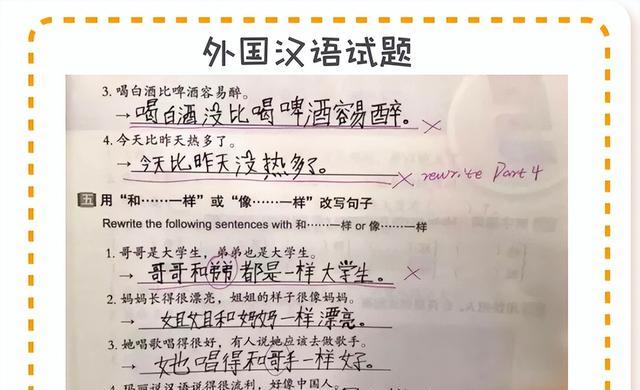 外国汉语试题
3. 喝白酒比啤酒容易醉。
→ 喝白酒没比喝啤酒容易醉。 ×
4. 今天比昨天热多了。
→ 今天比昨天没热多了。 × rewrite Part 4
五 用“和……一样”或“像……一样”改写句子
Rewrite the following sentences with 和……一样 or 像……一样
1. 哥哥是大学生,弟弟也是大学生。
→ 哥哥和 都是一样大学生。 ×
2. 妈妈长得很漂亮,姐姐的样子很像妈妈。
→ 姐姐和妈妈一样漂亮。
3. 她唱歌唱得很好,有人说她应该去做歌手。
→ 她唱得和哥手一样好。
4. 玛丽说汉语说得很流利,好像中国人。